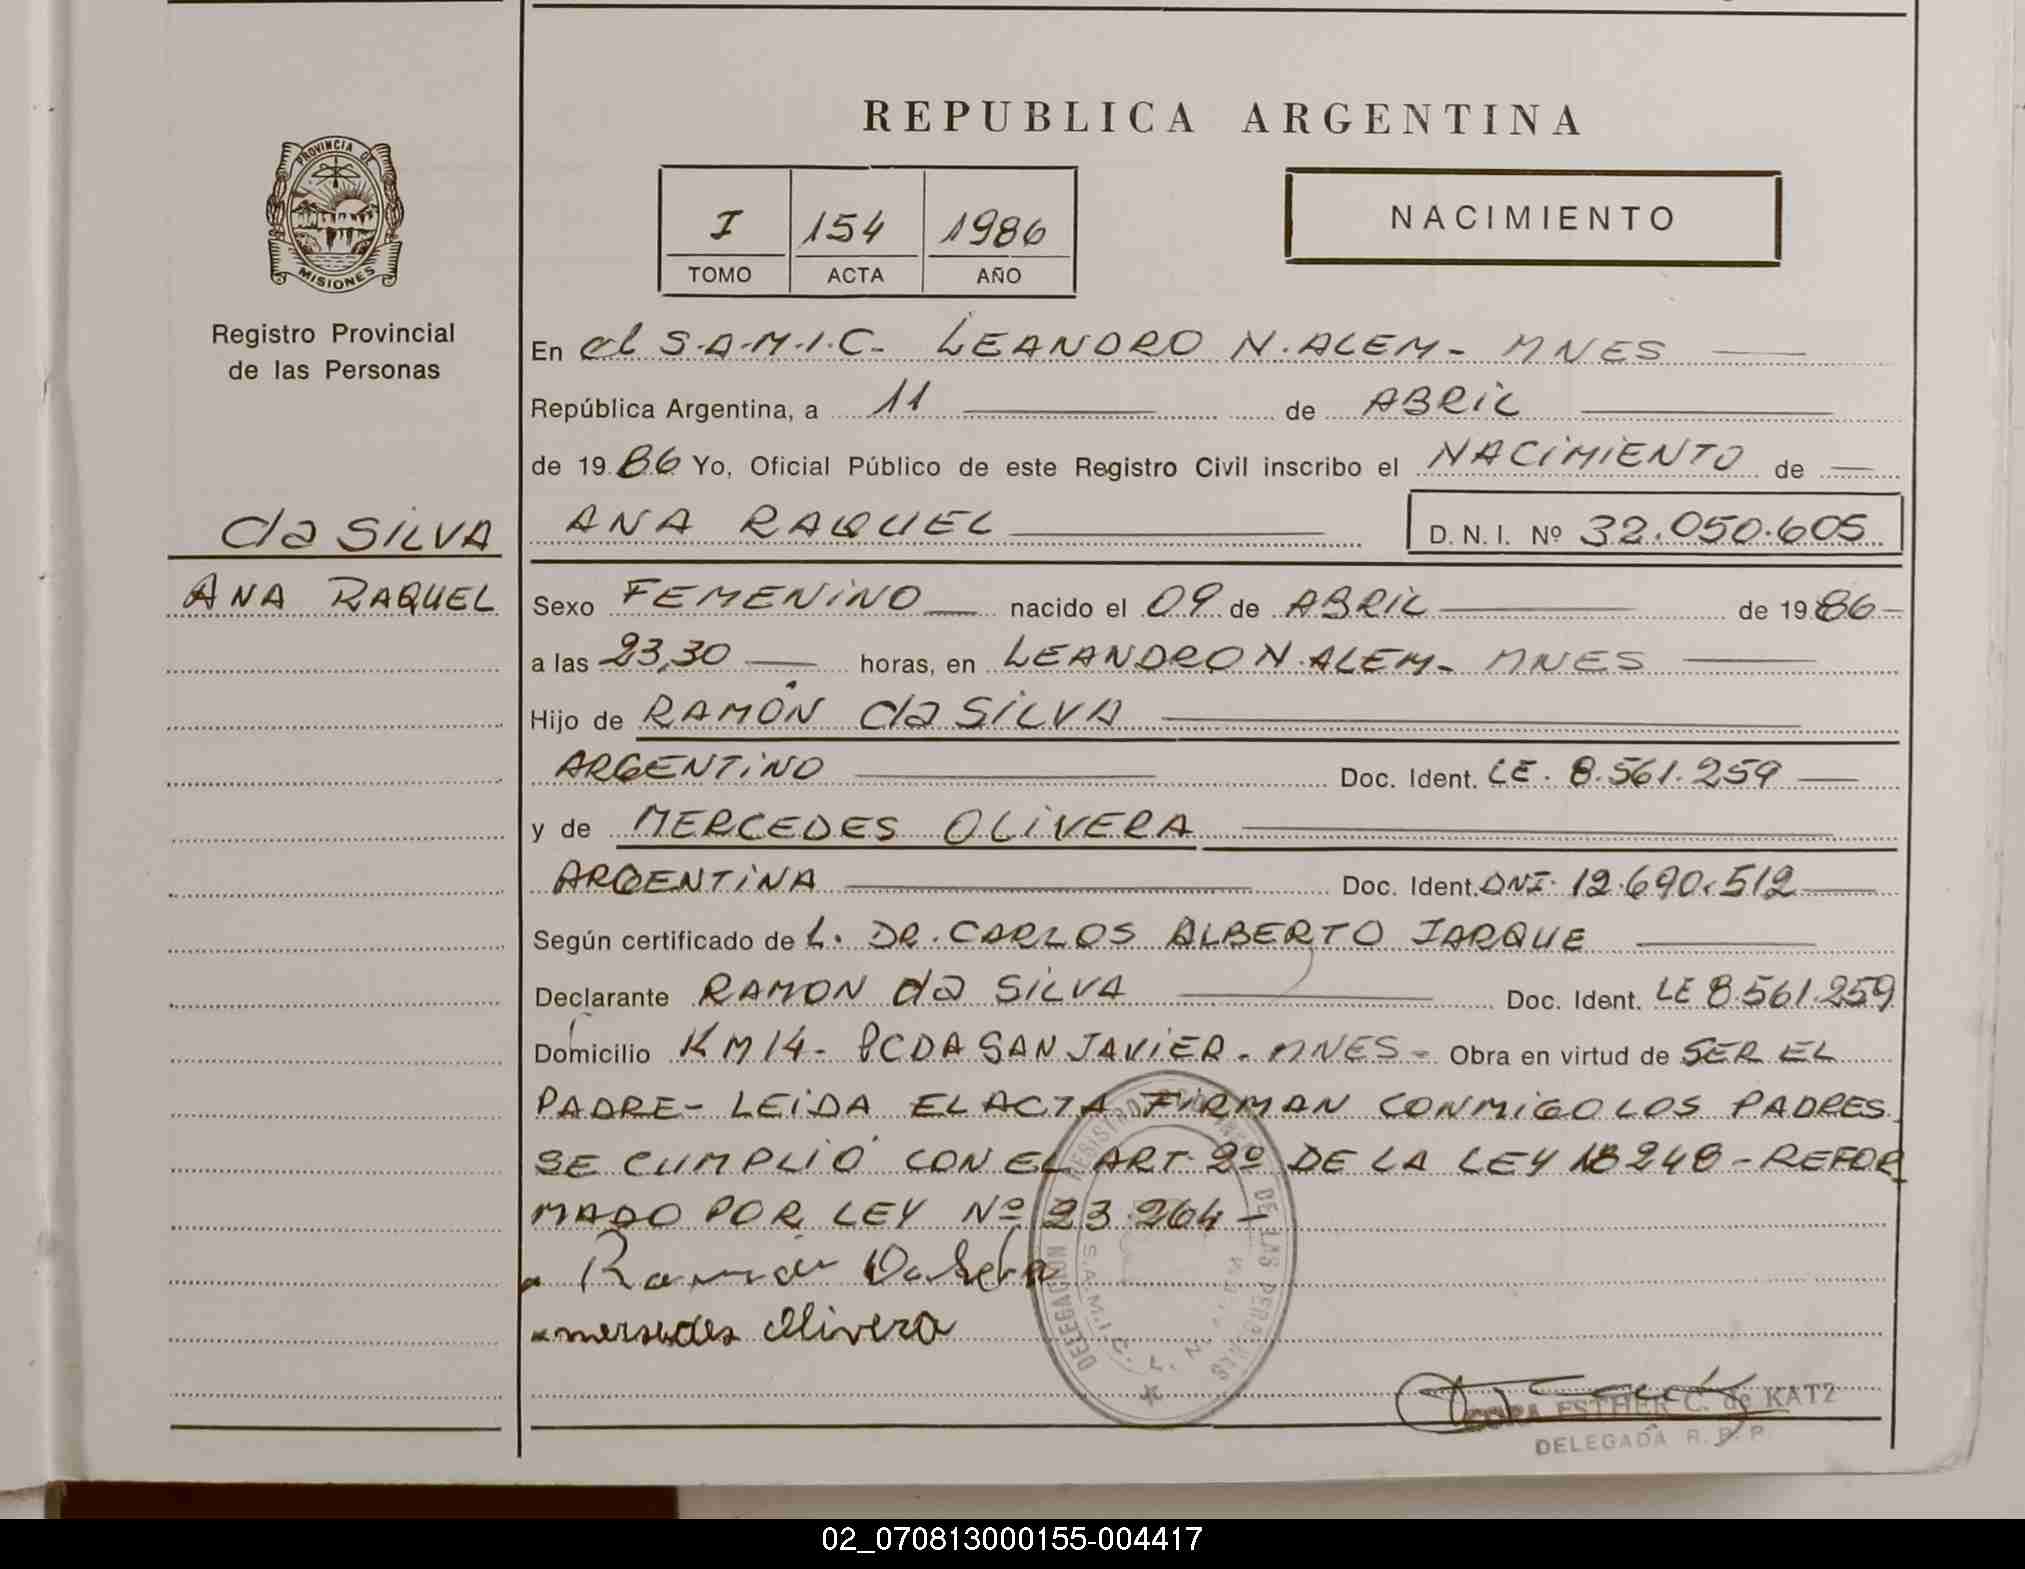 REPUBLICA ARGENTINA
PROVINCIA DE
MISIONES
Registro Provincial
de las Personas
I 154 1986
TOMO ACTA AÑO
NACIMIENTO
En el S.A.M.I.C. LEANDRO N. ALEM - MNES
República Argentina, a 11 de ABRIL
de 1986 Yo, Oficial Público de este Registro Civil inscribo el NACIMIENTO de
da SILVA
ANA RAQUEL
ANA RAQUEL D. N. I. Nº 32.050.605
Sexo FEMENINO nacido el 09 de ABRIL de 1986
a las 23,30 horas, en LEANDRO N. ALEM - MNES
Hijo de RAMÓN da SILVA
ARGENTINO Doc. Ident. LE. 8.561.259
y de MERCEDES OLIVERA
ARGENTINA Doc. Ident. DNI. 12.690.512
Según certificado de L. DR. CARLOS ALBERTO JARQUE
Declarante RAMON da SILVA Doc. Ident. LE 8.561.259
Domicilio KM 14 - PCDA SAN JAVIER - MNES - Obra en virtud de SER EL
PADRE - LEIDA EL ACTA FIRMAN CONMIGO LOS PADRES
SE CUMPLIÓ CON EL ART. 2º DE LA LEY 18248 - REFOR
MADO POR LEY Nº 23.264 -
Ramón Da Selva
mersedes Olivera
DELEGACION REGISTRO DE LAS PERSONAS
S.A.M.I.C. L. N.
ESTHER C. de KATZ
DELEGADA R. P. P.
02_070813000155-004417